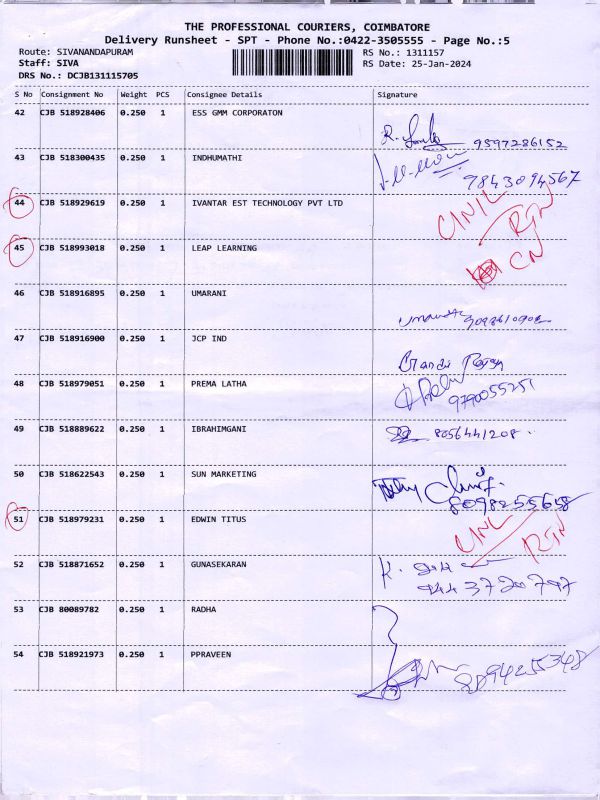 THE PROFESSIONAL COURIERS, COIMBATORE
Delivery Runsheet - SPT - Phone No.:0422-3505555 - Page No.:5
Route: SIVANANDAPURAM RS No.: 1311157
Staff: SIVA RS Date: 25-Jan-2024
DRS No.: DCJB131115705
S No Consignment No Weight PCS Consignee Details Signature
42 CJB 518928406 0.250 1 ESS GMM CORPORATON
9597286152
43 CJB 518300435 0.250 1 INDHUMATHI
9843094567
44 CJB 518929619 0.250 1 IVANTAR EST TECHNOLOGY PVT LTD
45 CJB 518993018 0.250 1 LEAP LEARNING
CN
46 CJB 518916895 0.250 1 UMARANI
47 CJB 518916900 0.250 1 JCP IND
48 CJB 518979051 0.250 1 PREMA LATHA
9790055251
49 CJB 518889622 0.250 1 IBRAHIMGANI
8056441208
50 CJB 518622543 0.250 1 SUN MARKETING
8098255658
51 CJB 518979231 0.250 1 EDWIN TITUS
52 CJB 518871652 0.250 1 GUNASEKARAN
944 3720797
53 CJB 80089782 0.250 1 RADHA
54 CJB 518921973 0.250 1 PPRAVEEN
8894255348